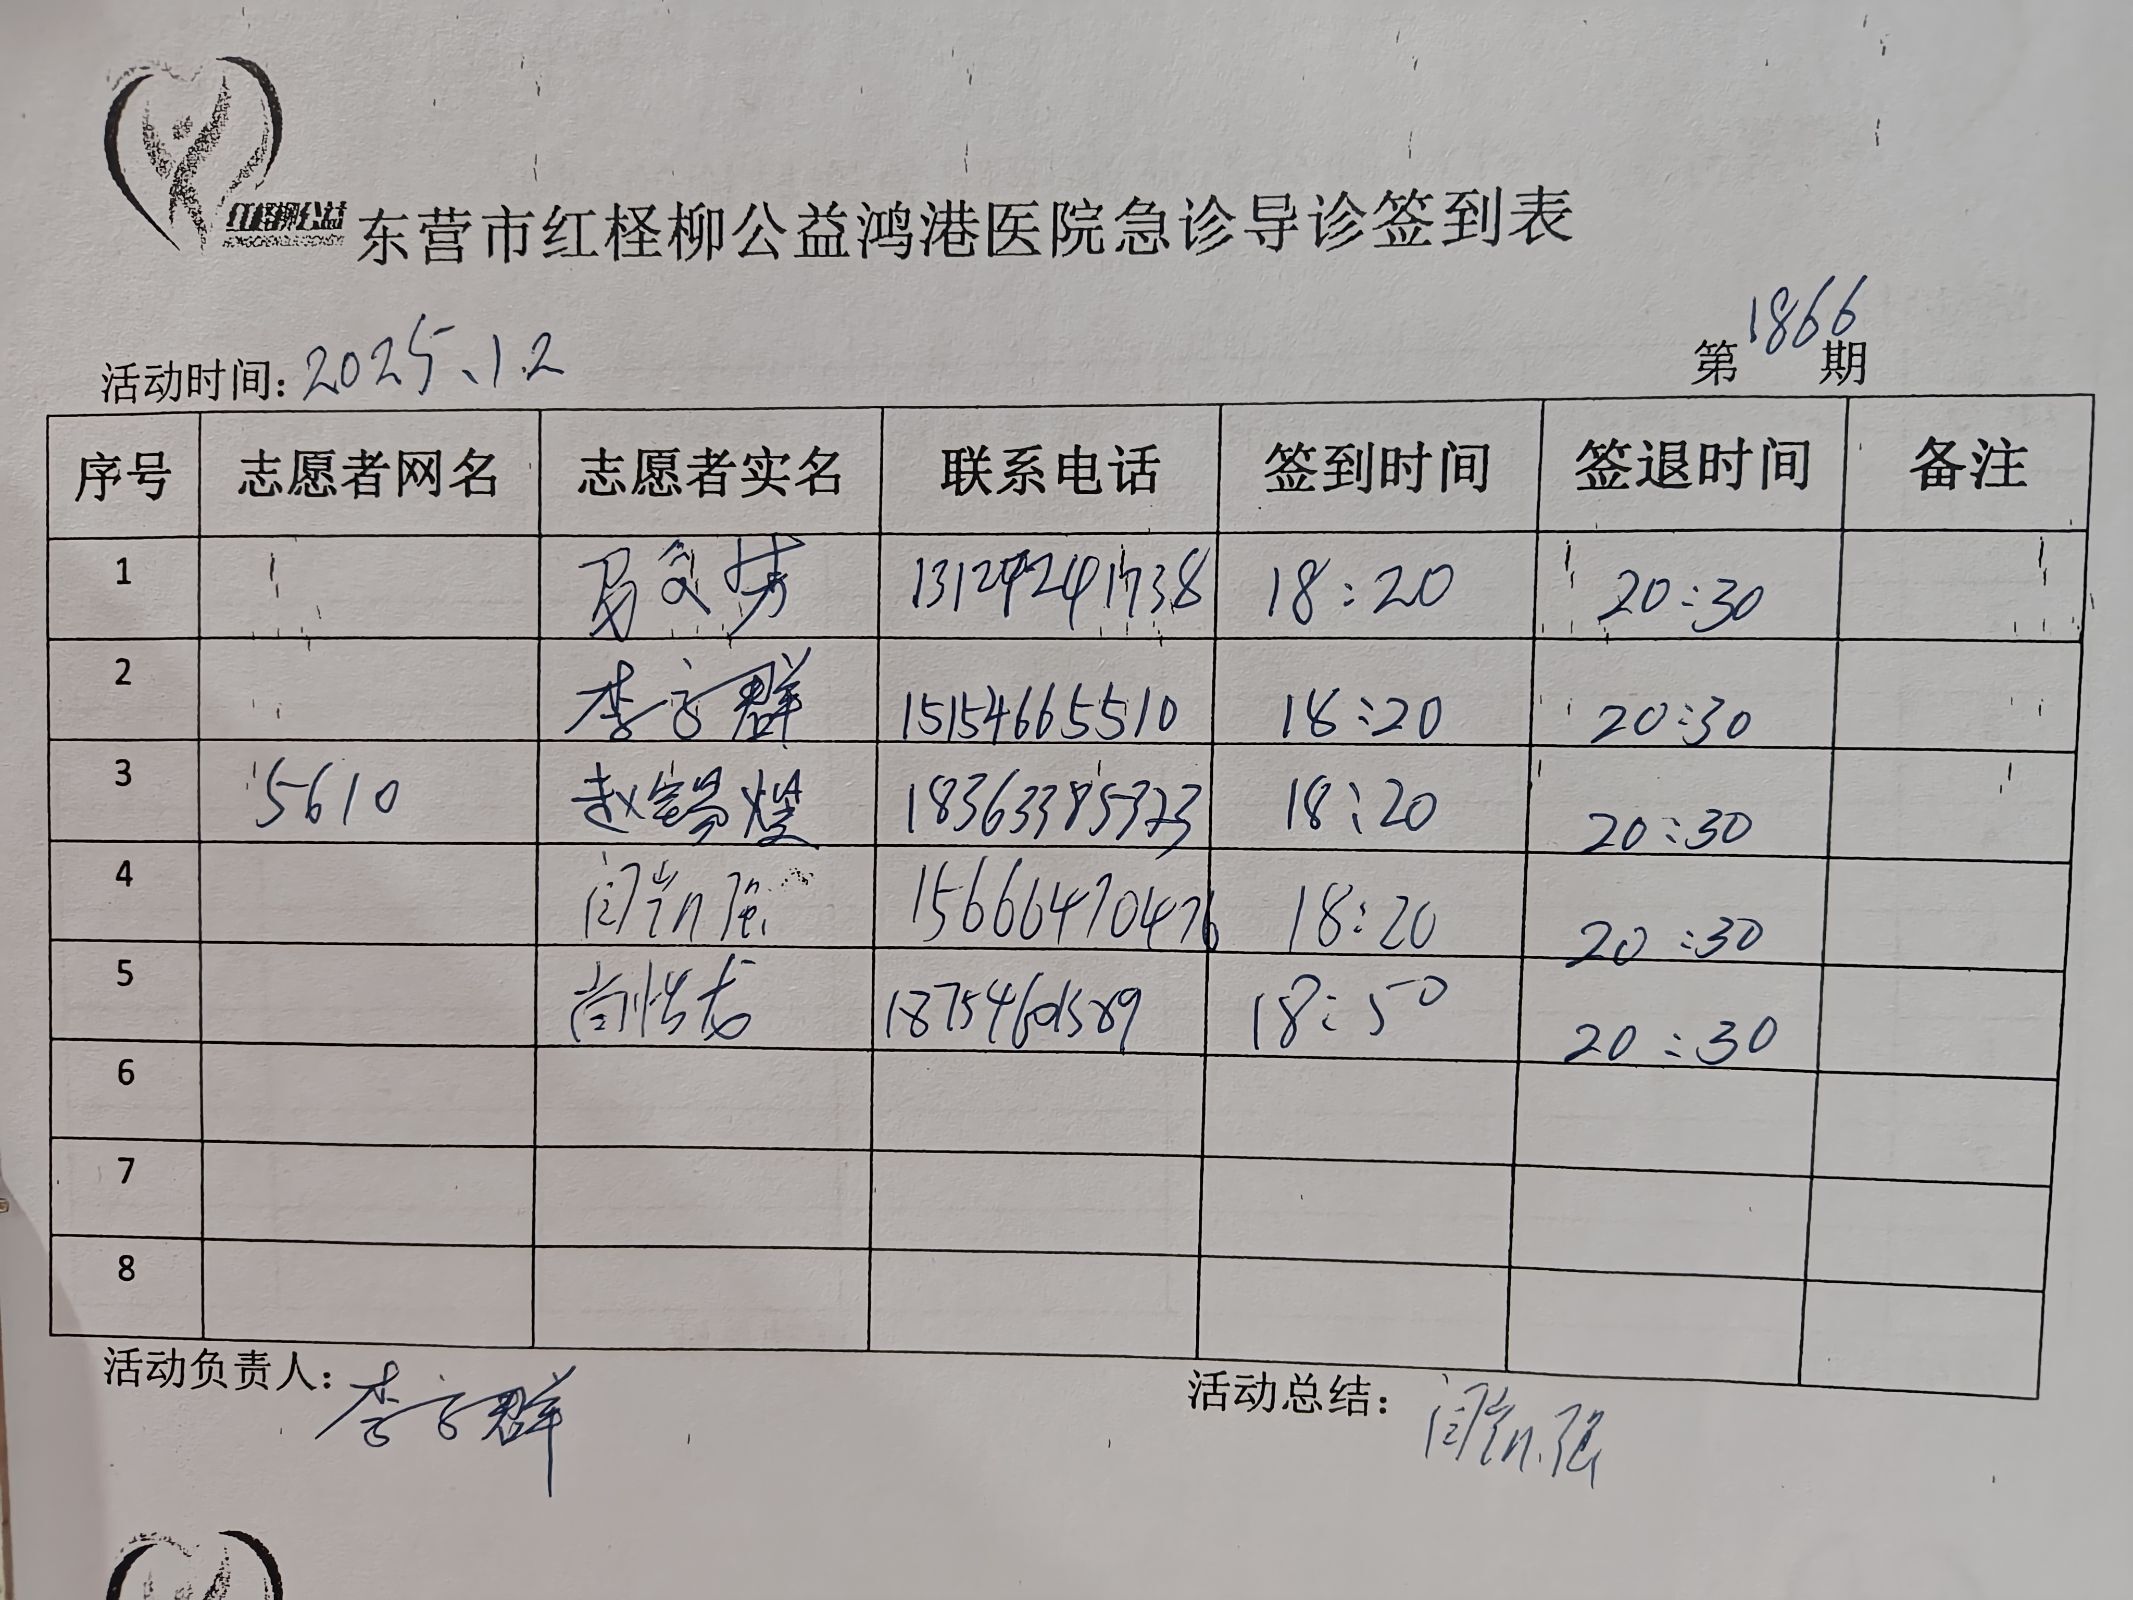 红柽柳公益
东营市红柽柳公益鸿港医院急诊导诊签到表
活动时间：2025.1.2 第1866期
序号 志愿者网名 志愿者实名 联系电话 签到时间 签退时间 备注
1 18:20 20:30
2 李子群 15154665510 18:20 20:30
3 5610 赵锡燰 18363385323 18:20 20:30
4 闫凯强 15666470476 18:20 20:30
5 18754601589 18:50 20:30
6
7
8
活动负责人：李子群 活动总结：闫凯强